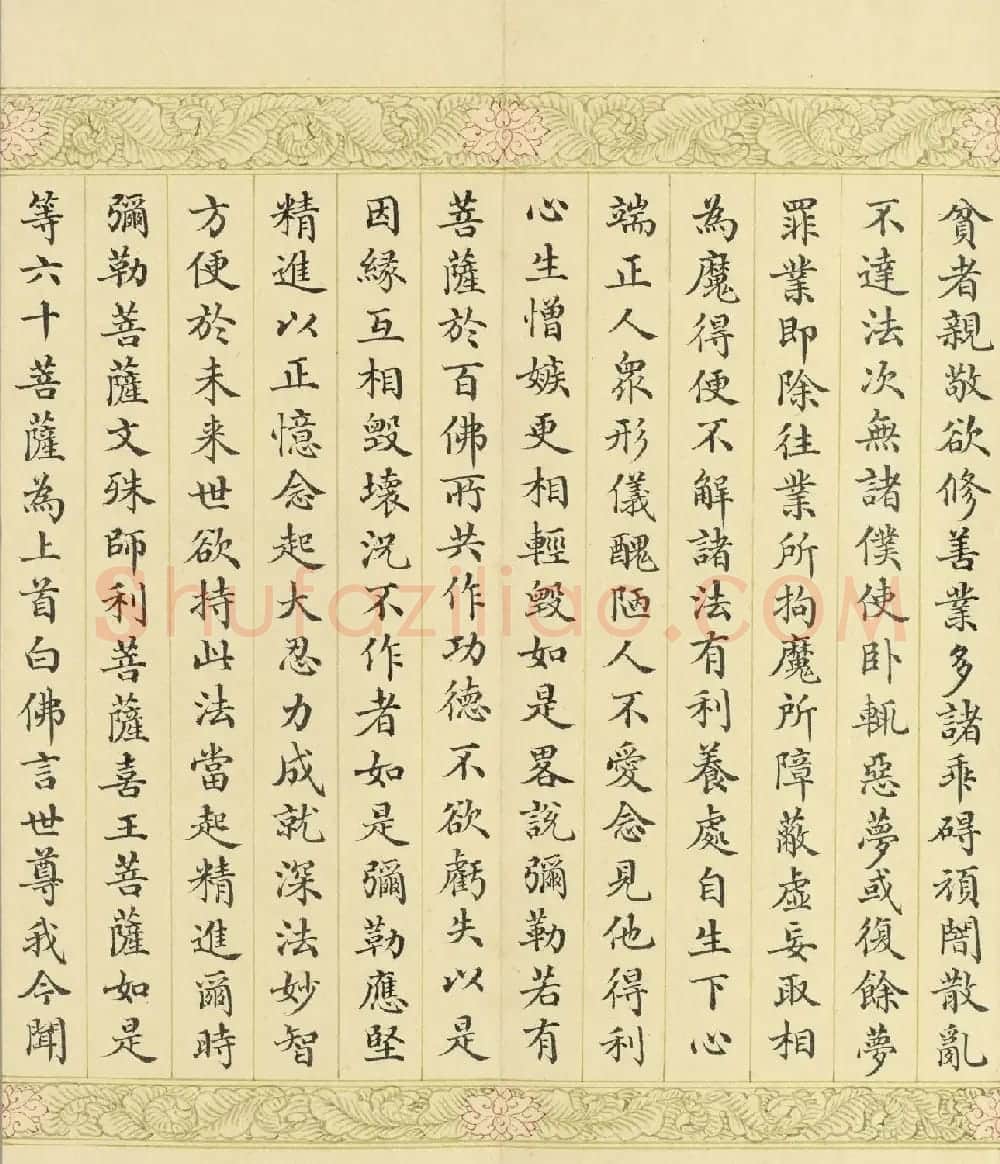 貧者親敬欲修善業多諸乖碍頑闇散亂
不達法次無諸僕使卧輒惡夢或復餘夢
罪業即除往業所拘魔所障蔽虛妄取相
為魔得便不解諸法有利養處自生下心
端正人眾形儀醜陋人不愛念見他得利
心生憎嫉更相輕毀如是畧說彌勒若有
菩薩於百佛所共作功德不欲虧失以是
因緣互相毀壞況不作者如是彌勒應堅
精進以正憶念起大忍力成就深法妙智
方便於未来世欲持此法當起精進爾時
彌勒菩薩文殊師利菩薩喜王菩薩如是
等六十菩薩為上首白佛言世尊我今聞
Shufaziliao.COM